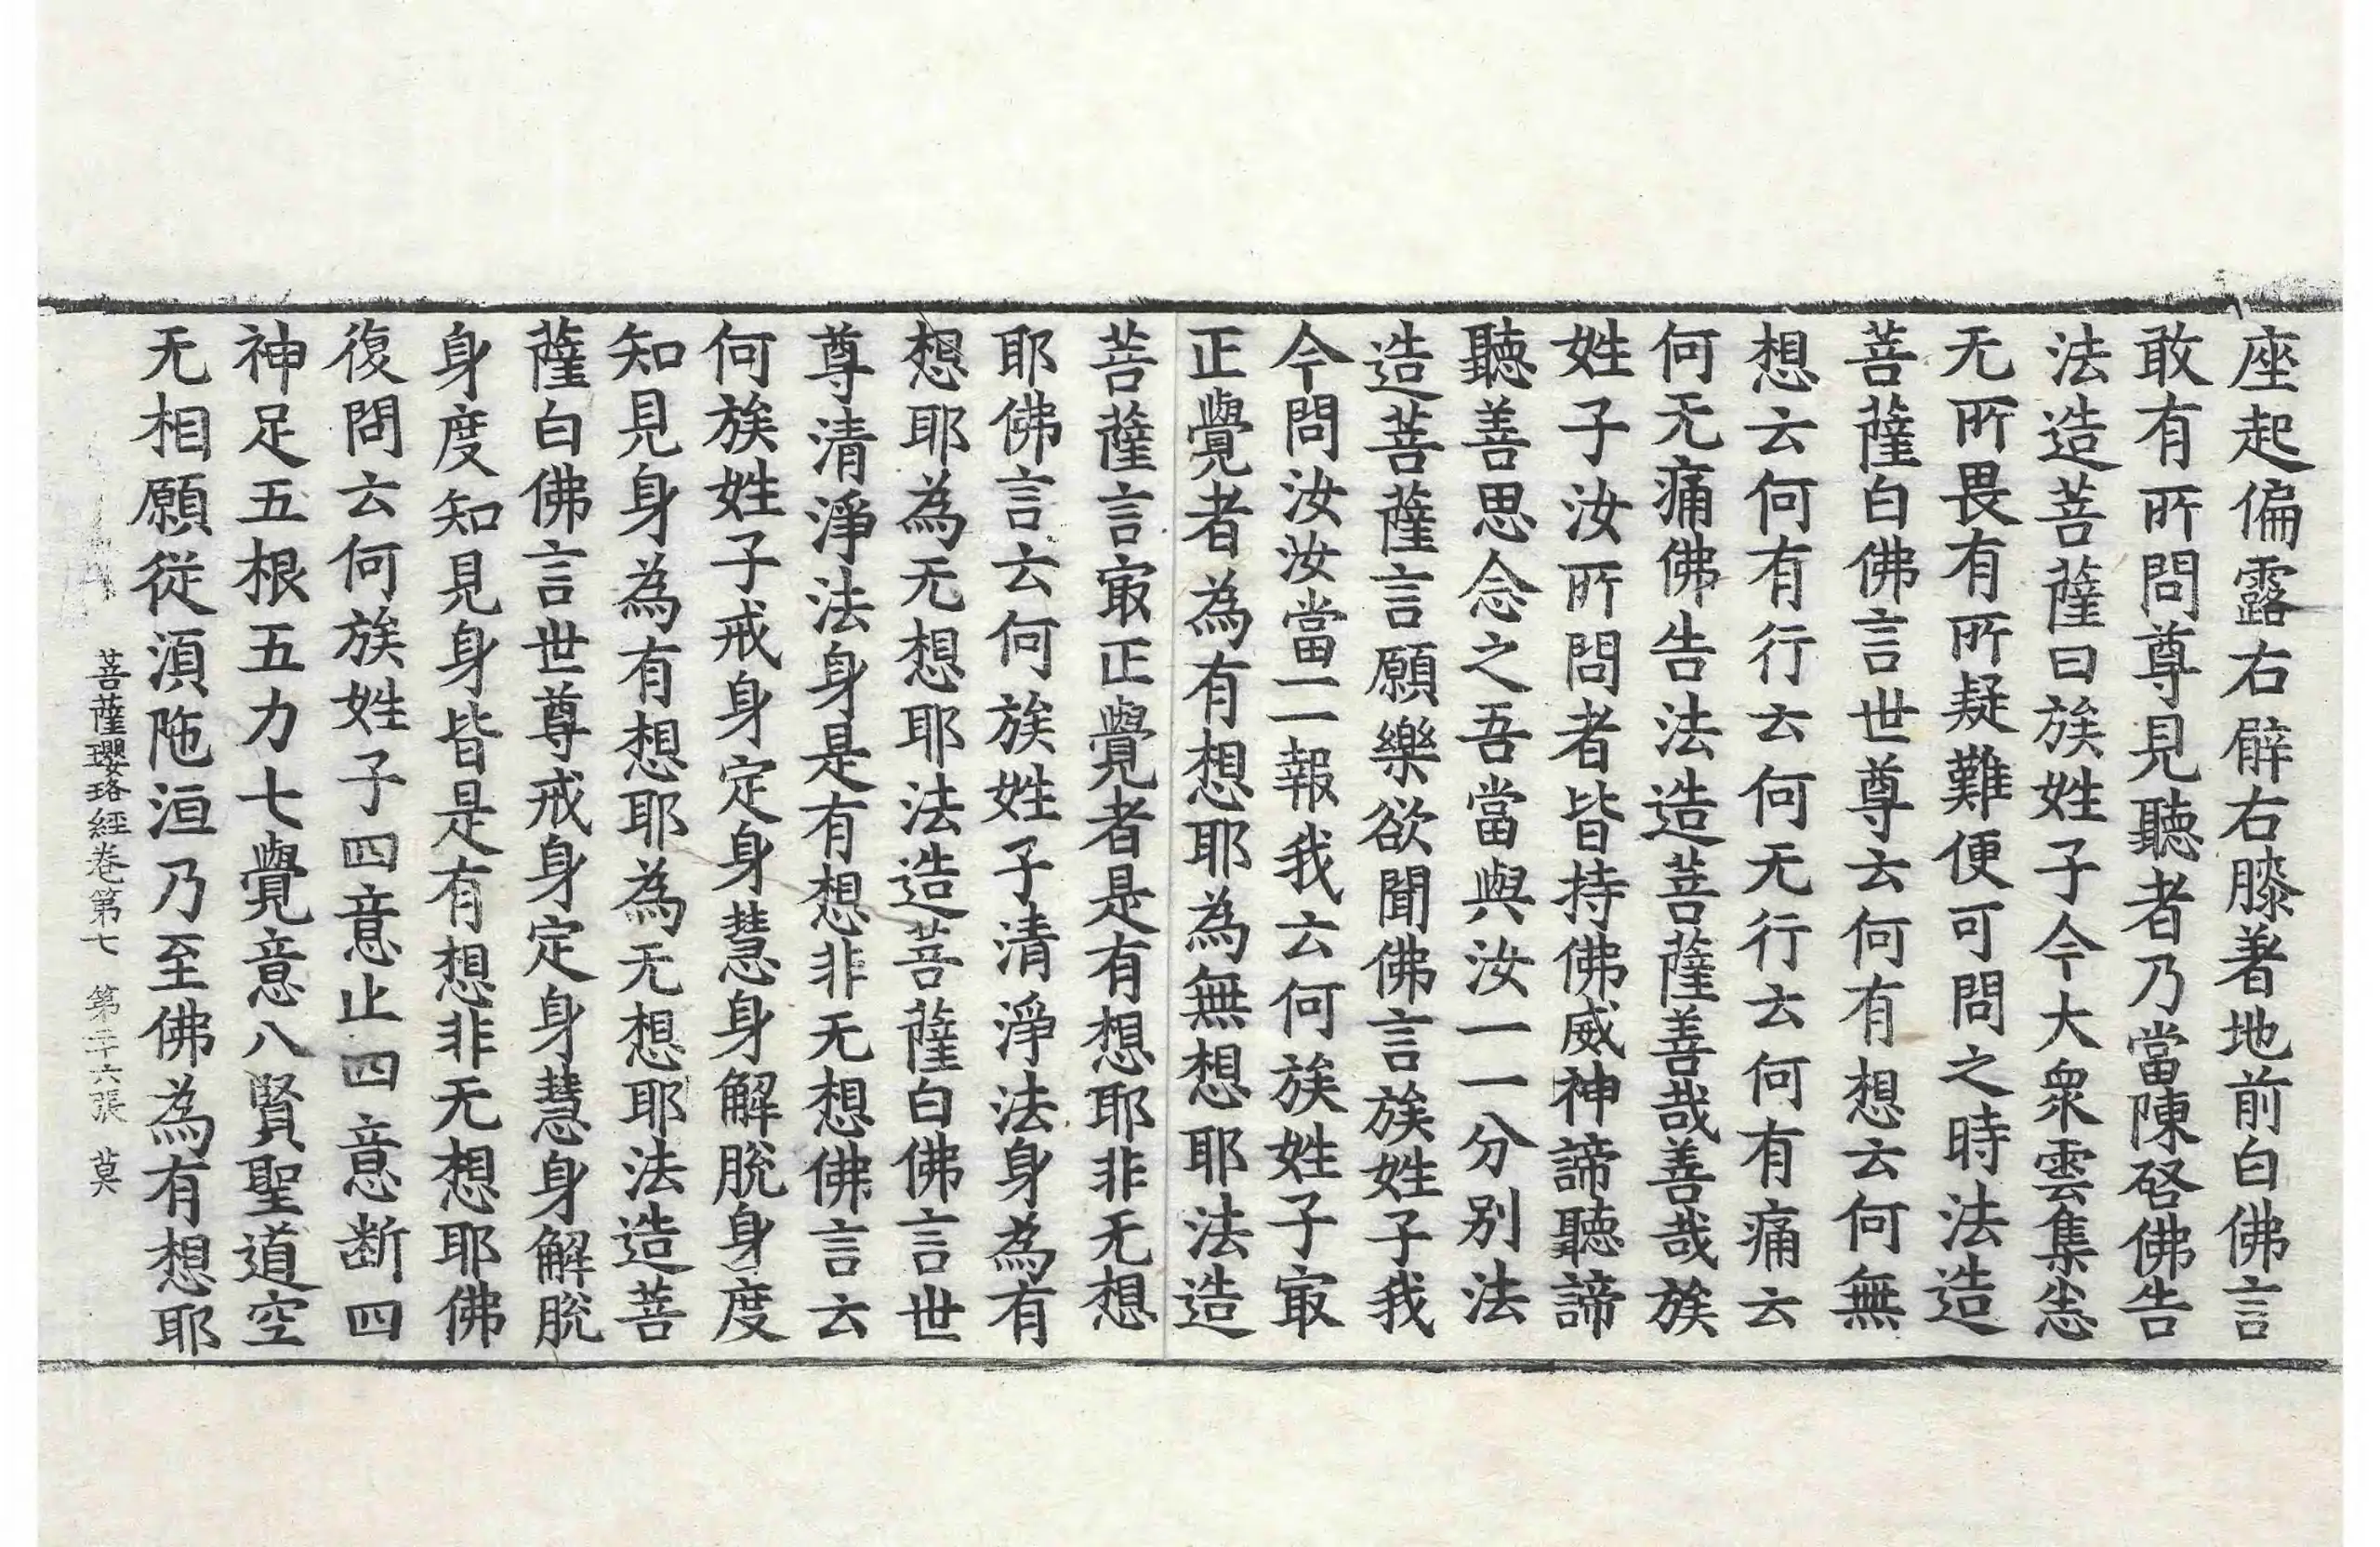 座起偏露右臂右膝著地前白佛言
敢有所問尊見聽者乃當陳啓佛告
法造菩薩曰族姓子今大衆雲集恣
无所畏有所疑難便可問之時法造
菩薩白佛言世尊云何有想云何無
想云何有行云何无行云何有痛云
何无痛佛告法造菩薩善哉善哉族
姓子汝所問者皆持佛威神諦聽諦
聽善思念之吾當與汝一一分別法
造菩薩言願樂欲聞佛言族姓子我
今問汝汝當一一報我云何族姓子㝡
正覺者為有想耶為無想耶法造
菩薩言㝡正覺者是有想耶非无想
耶佛言云何族姓子清淨法身為有
想耶為无想耶法造菩薩白佛言世
尊清淨法身是有想非无想佛言云
何族姓子戒身定身慧身解脫身度
知見身為有想耶為无想耶法造菩
薩白佛言世尊戒身定身慧身解脫
身度知見身皆是有想非无想耶佛
復問云何族姓子四意止四意断四
神足五根五力七覺意八賢聖道空
无相願從湏陁洹乃至佛為有想耶
菩薩瓔珞經卷第七 第二十六張 莫